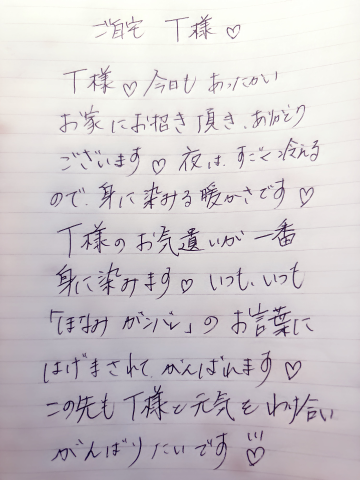 ご自宅 T様♡
T様♡今日も あったかい
お家にお招き頂き、ありがとう
ございます♡ 夜は、すごく冷える
ので、身に染みる暖かさです♡
T様のお気遣いが一番
身に染みます♡ いつも、いつも
「ほなみ ガンバレ」の お言葉に
はげまされて、がんばれます♡
この先も T様と元気をわけ合い
がんばりたいです♡